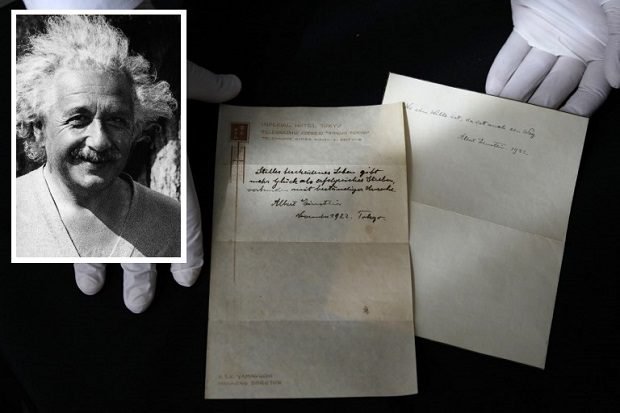 IMPERIAL HOTEL, TOKYO
Stilles bescheidenes Leben gibt
mehr Glück als erfolgreiches Streben,
verbunden mit beständiger Unruhe.
Albert Einstein
November 1922. Tokyo.
MANAGING DIRECTOR
Wo ein Wille ist, da ist auch ein Weg
Albert Einstein 1922